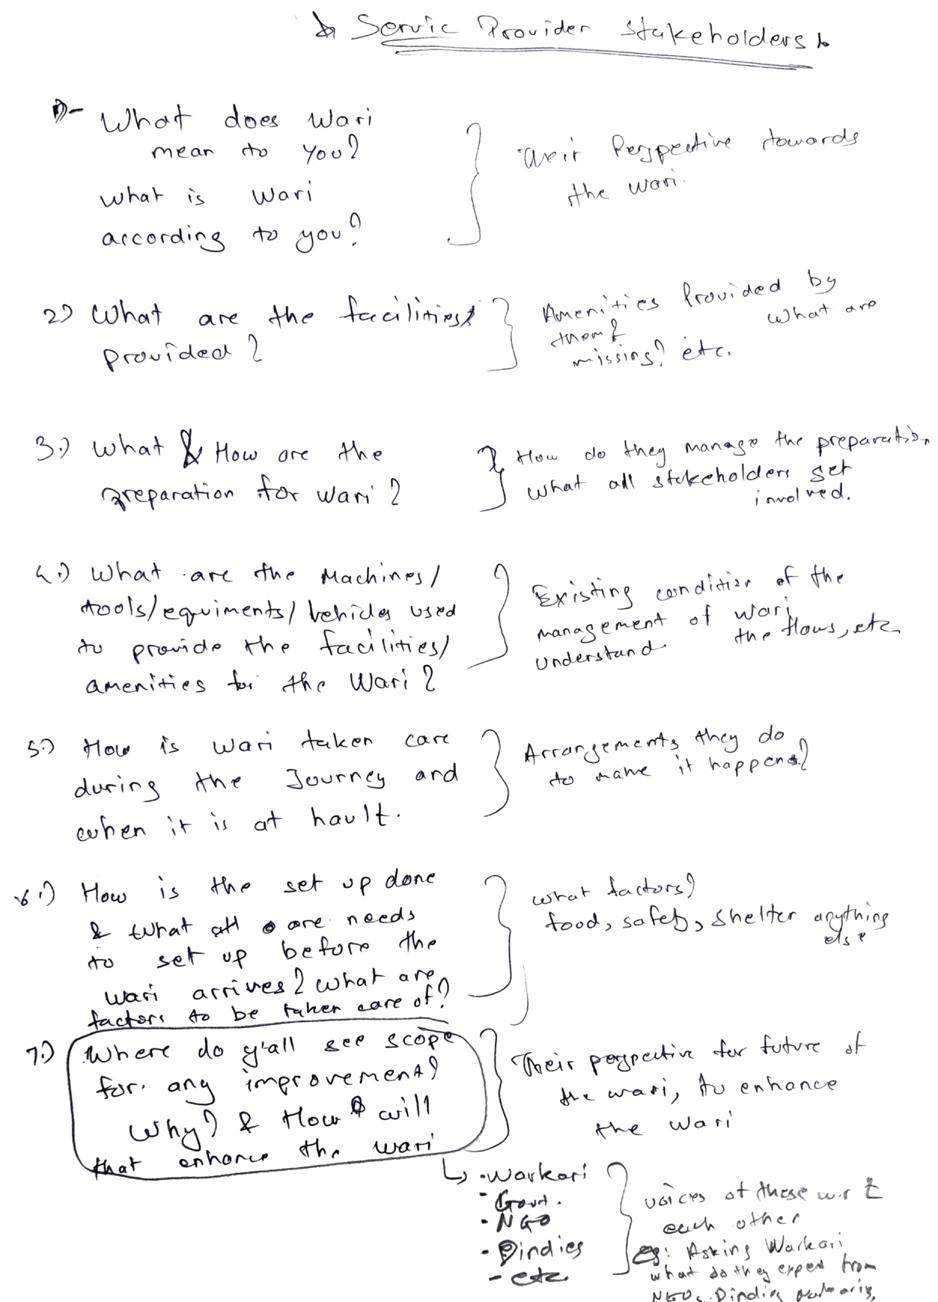 Servic Provider Stakeholders
1)- What does Wari
mean to you?
what is Wari
according to you?
Their Perspective towards
the wari.
2) What are the facilities
provided?
Amenities Provided by
them? What are
missing? etc.
3.) What & How are the
preparation for Wari?
How do they manage the preparation,
What all stakeholders get
involved.
4.) What are the Machines/
tools/equiments/vehicles used
to provide the facilities/
amenities for the Wari?
Existing condition of the
management of wari
understand the flows, etc
5.) How is wari taken care
during the Journey and
when it is at hault.
Arrangements they do
to make it happens?
6.) How is the set up done
& what all are needs
to set up before the
wari arrives? what are
factors to be taken care of?
what factors?
food, safety, shelter anything
else
7.) Where do y'all see scope
for any improvement?
Why? & How will
that enhance the wari
Their perspective for future of
the wari, to enhance
the wari
- Warkari
- Govt.
- NGO
- Dindies
- etc
voices of these w.r.t
each other
eg: Asking Warkari
what do they expect from
NGO, Dindies